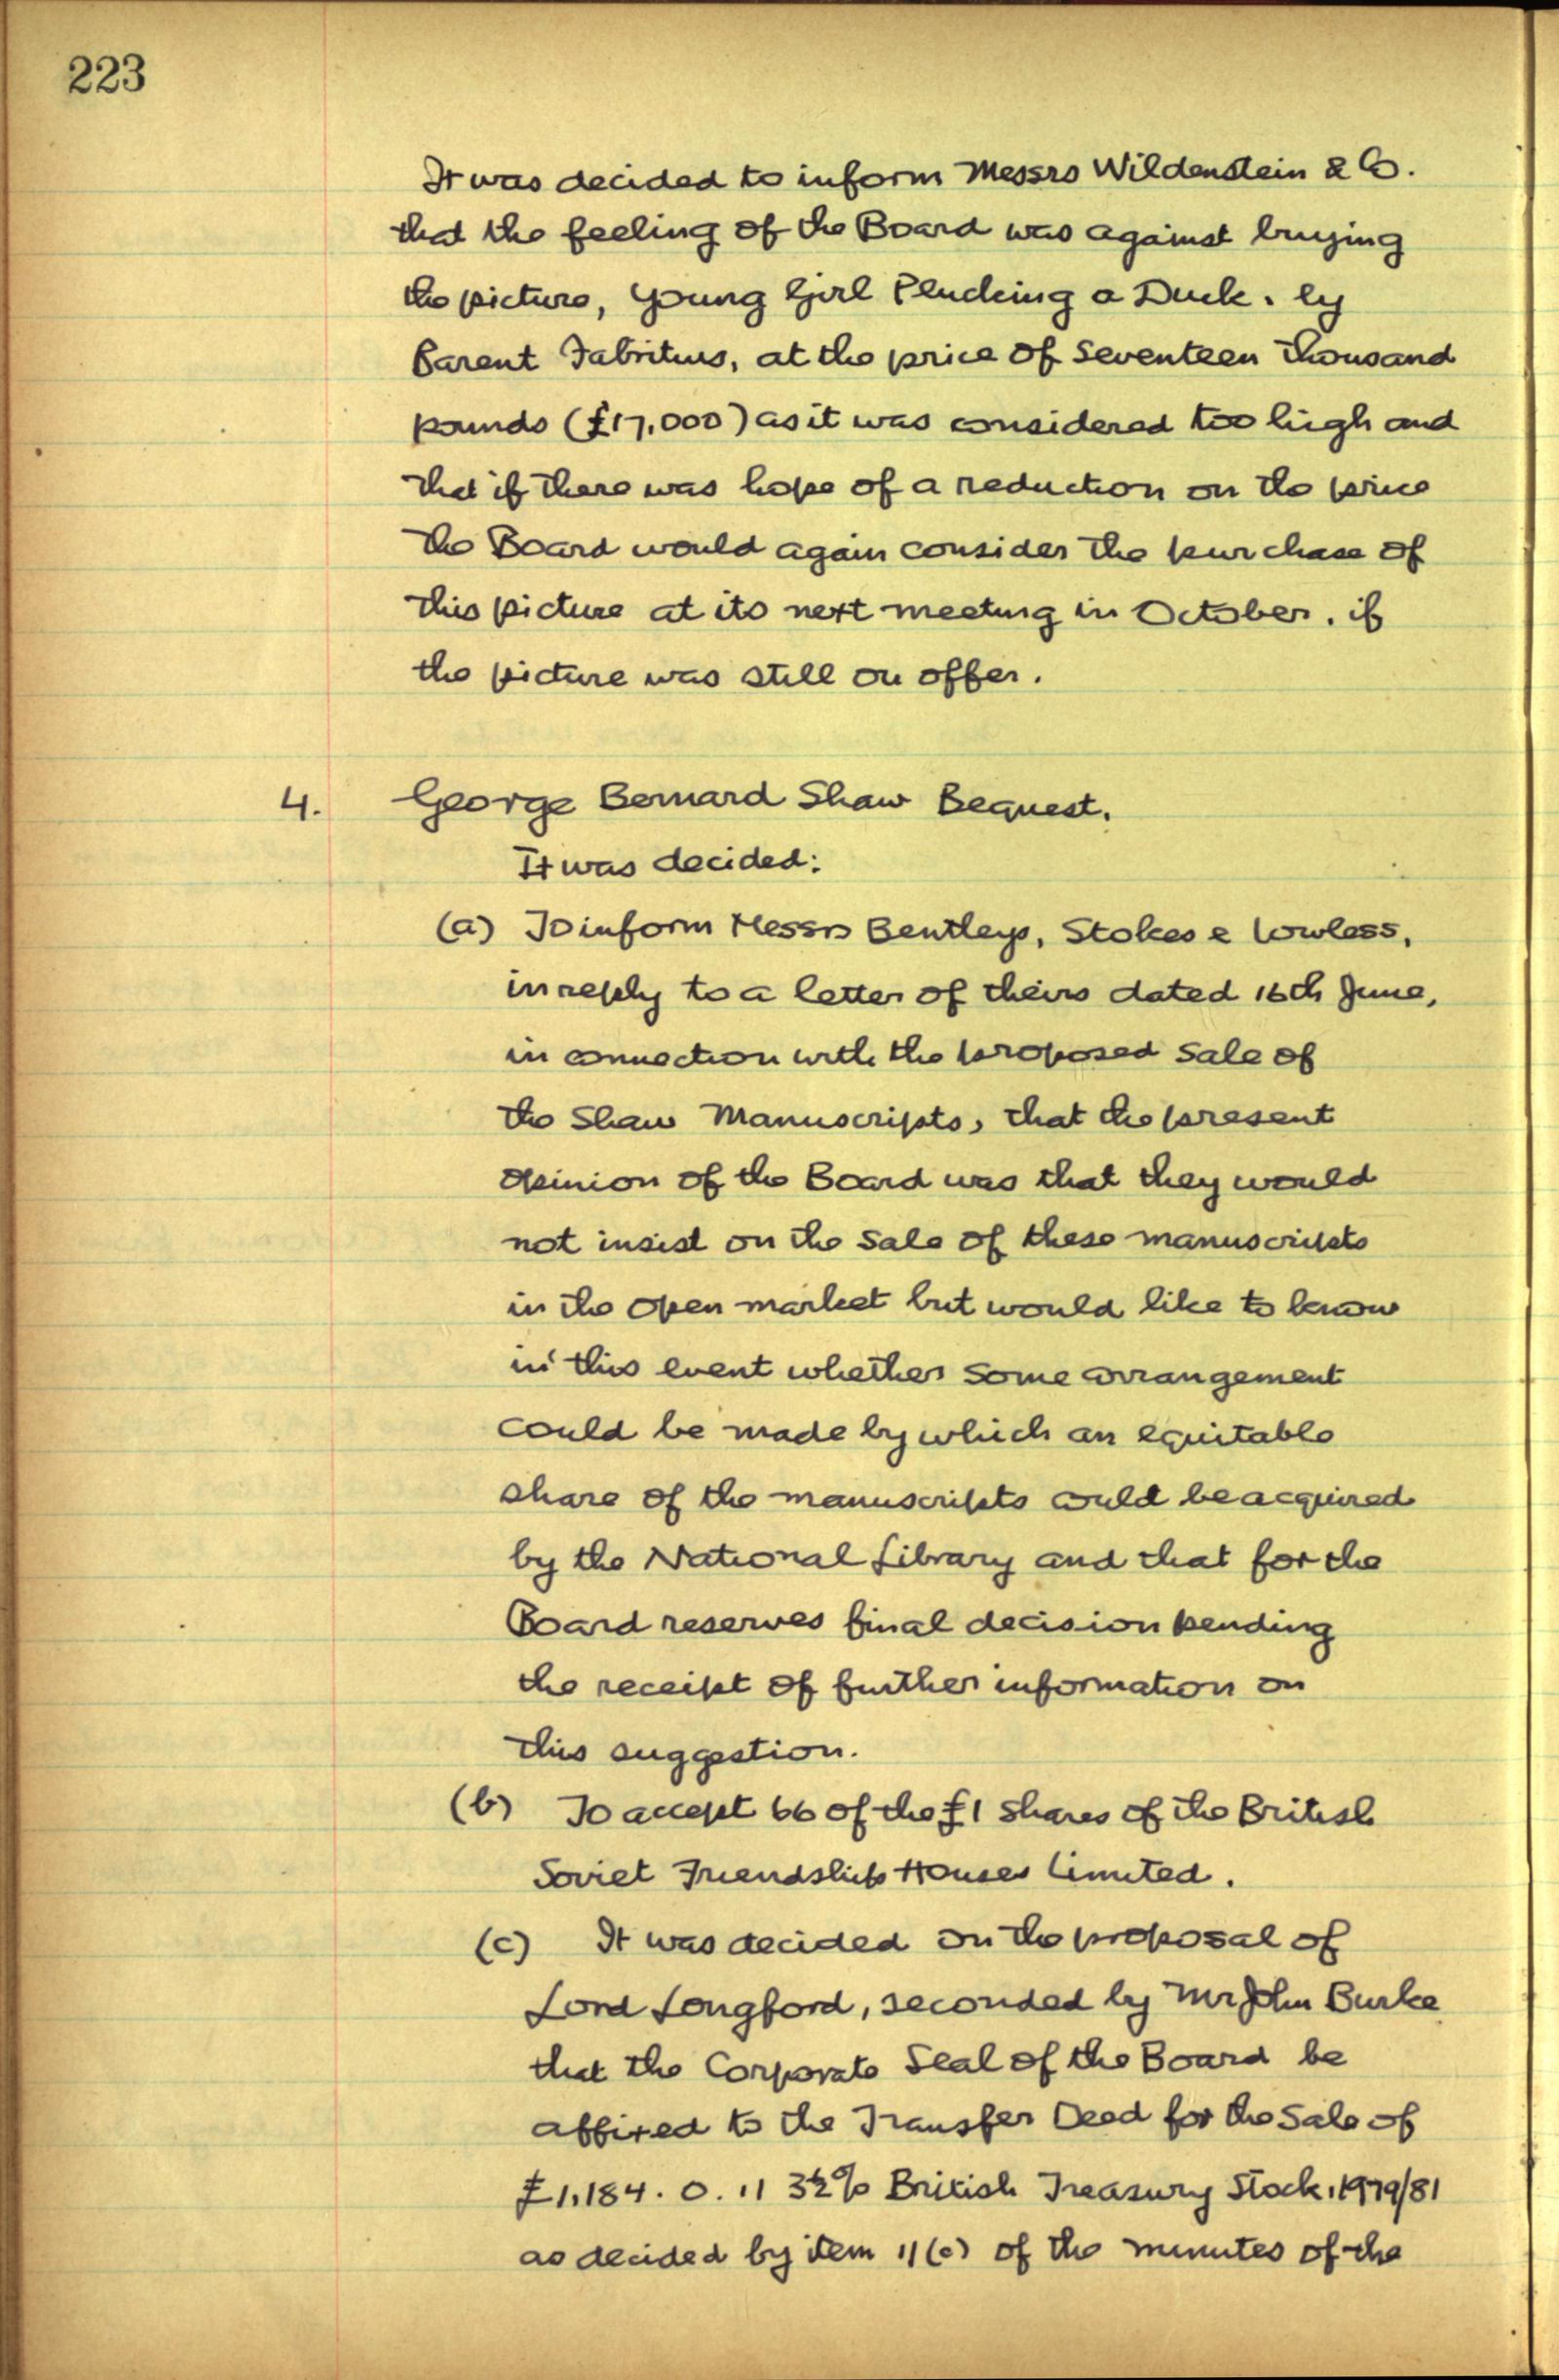 223
It was decided to inform Messrs Wildenstein & Co.
that the feeling of the Board was against buying
the picture, Young Girl Plucking a Duck. by
Barent Fabritius, at the price of seventeen thousand
pounds (£17,000) as it was considered too high and
that if there was hope of a reduction on the price
the Board would again consider the purchase of
this picture at its next meeting in October, if
the picture was still on offer.
4. George Bernard Shaw Bequest.
It was decided:
(a) To inform Messrs Bentleys, Stokes & Lowless,
in reply to a letter of theirs dated 16th June,
in connection with the proposed sale of
the Shaw Manuscripts, that the present
opinion of the Board was that they would
not insist on the sale of these manuscripts
in the open market but would like to know
in this event whether some arrangement
could be made by which an equitable
share of the manuscripts could be acquired
by the National Library and that for the
Board reserves final decision pending
the receipt of further information on
this suggestion.
(b) To accept 66 of the £1 shares of the British
Soviet Friendship Houses Limited.
(c) It was decided on the proposal of
Lord Longford, seconded by Mr John Burke
that the Corporate Seal of the Board be
affixed to the Transfer Deed for the Sale of
£1,184. 0. 11 3½% British Treasury Stock, 1979/81
as decided by item 11(c) of the minutes of the